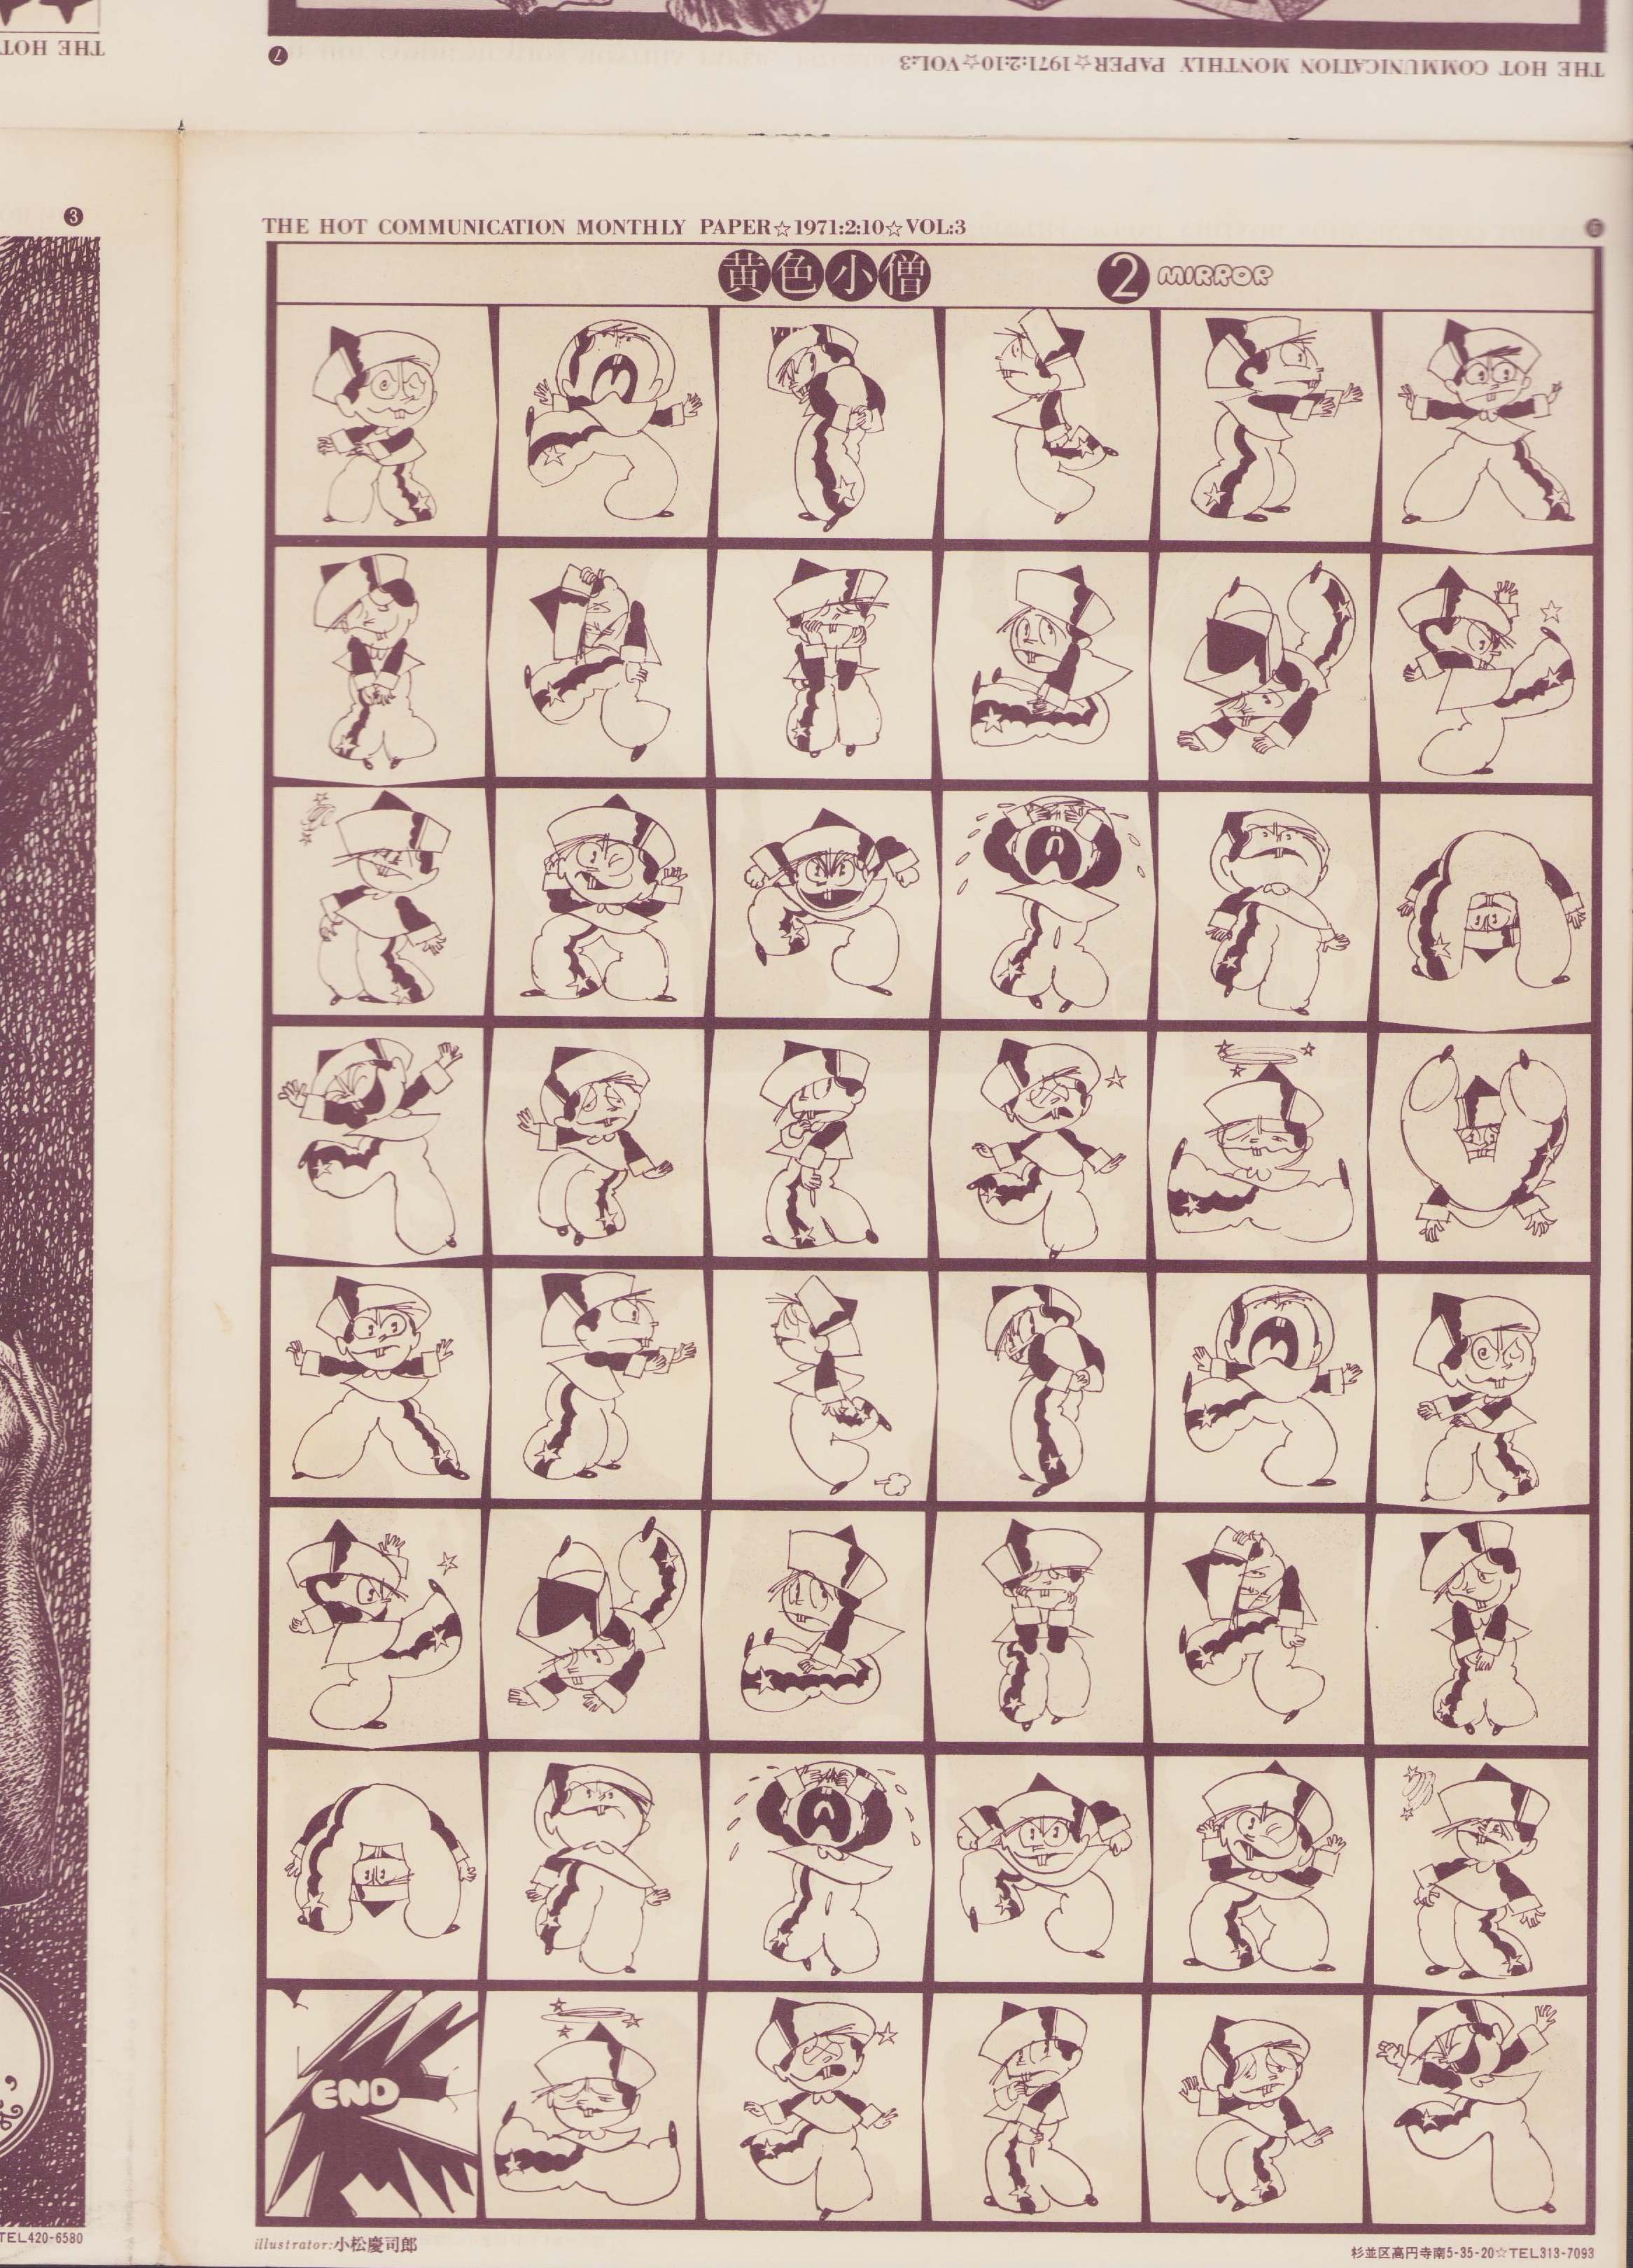 THE HOT
❼
THE HOT COMMUNICATION MONTHLY PAPER☆1971:2:10☆VOL:3
❸
THE HOT COMMUNICATION MONTHLY PAPER☆1971:2:10☆VOL:3
黄色小僧 ❷ MIRROR
END
TEL420-6580
illustrator:小松慶司郎
杉並区高円寺南5-35-20☆TEL313-7093